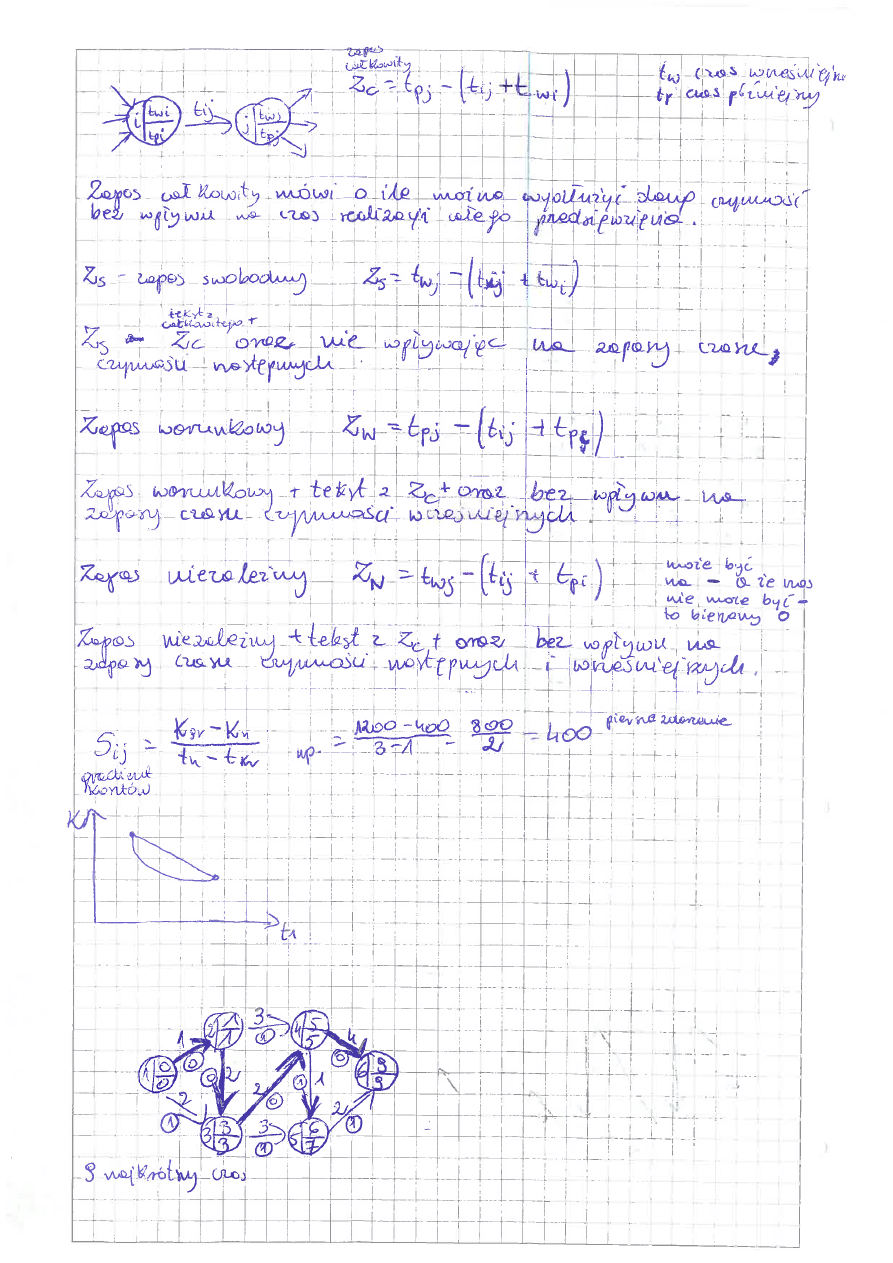 zapas
całkowity
Zc = tpj - (tij + twi)
tw czas wcześniejszy
tp czas późniejszy
i twi tpi tij j twj tpj
Zapas całkowity mówi o ile można wydłużyć daną czynność
bez wpływu na czas realizacji całego przedsięwzięcia.
Zs - zapas swobodny Zs = twj - (tij + twi)
tekst z
całkowitego +
Zs - Zc oraz nie wpływając na zapasy czasu
czynności następnych
Zapas warunkowy Zw = tpj - (tij + tpi)
Zapas warunkowy + tekst z Zc + oraz bez wpływu na
zapasy czasu czynności wcześniejszych.
Zapas niezależny ZN = twj - (tij + tpi)
może być
na - a że nas
nie może być -
to bierzemy 0
Zapas niezależny + tekst z Zc + oraz bez wpływu na
zapasy czasu czynności następnych i wcześniejszych.
Sij = Kgr - Kn / tn - tgr np. = 1200 - 400 / 3 - 1 = 800 / 2 = 400
gradient
kosztów
K
t
1 0 0
1 0
2 1 1
3 0
4 5 5
4 0
6 9 9
2 1
0 2
2 0
1 1
2 1
3 3 3
3 1
5 6 7
9 najkrótszy czas